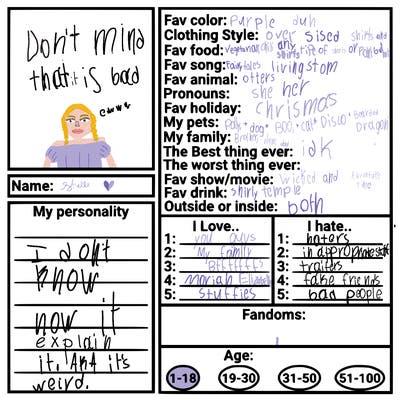 Don't mind
that it is bad
Name:
My personality
I don't
know
now it
explain
it, AKA it's
weird.
Fav color: Purple duh
Clothing Style: over sised shirts and
Fav food: any
Fav song: Fairytales livingstom
Fav animal: otters
Pronouns: she her
Fav holiday: chrismas
My pets: dog, BOO, cat, Disco, Bearded Dragon
My family:
The Best thing ever: idk
The worst thing ever:
Fav show/movie: Wicked and
Fav drink: shirly temple
Outside or inside: both
I Love..
1: you guys
2: My family
3: Bffffffs
4: Moriah Elizabeth
5: stuffies
I hate..
1: haters
2: inappropriate stuff
3: traitors
4: fake friends
5: bad people
Fandoms:
Age:
1-18 19-30 31-50 51-100